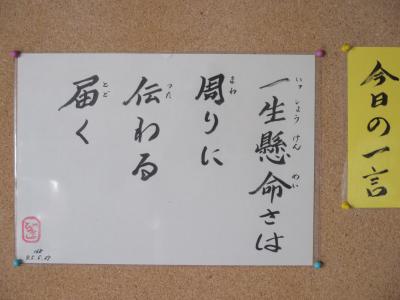 今日の一言
一生懸命さは
いっしょうけんめい
周りに
まわ
伝わる
つた
届く
とど